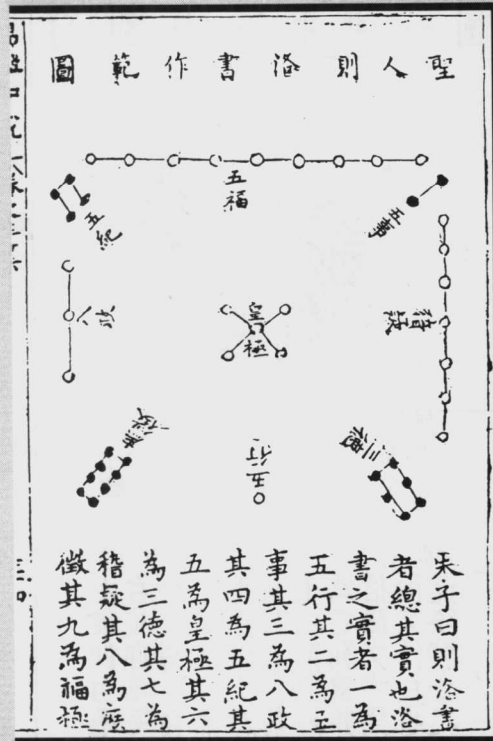 聖人則洛書作範圖
五福
五事
五紀
稽疑
皇極
八政
三德
五行
庶徵
朱子曰則洛書
者總其實也洛
書之實者一為
五行其二為五
事其三為八政
其四為五紀其
五為皇極其六
為三德其七為
稽疑其八為庶
徵其九為福極